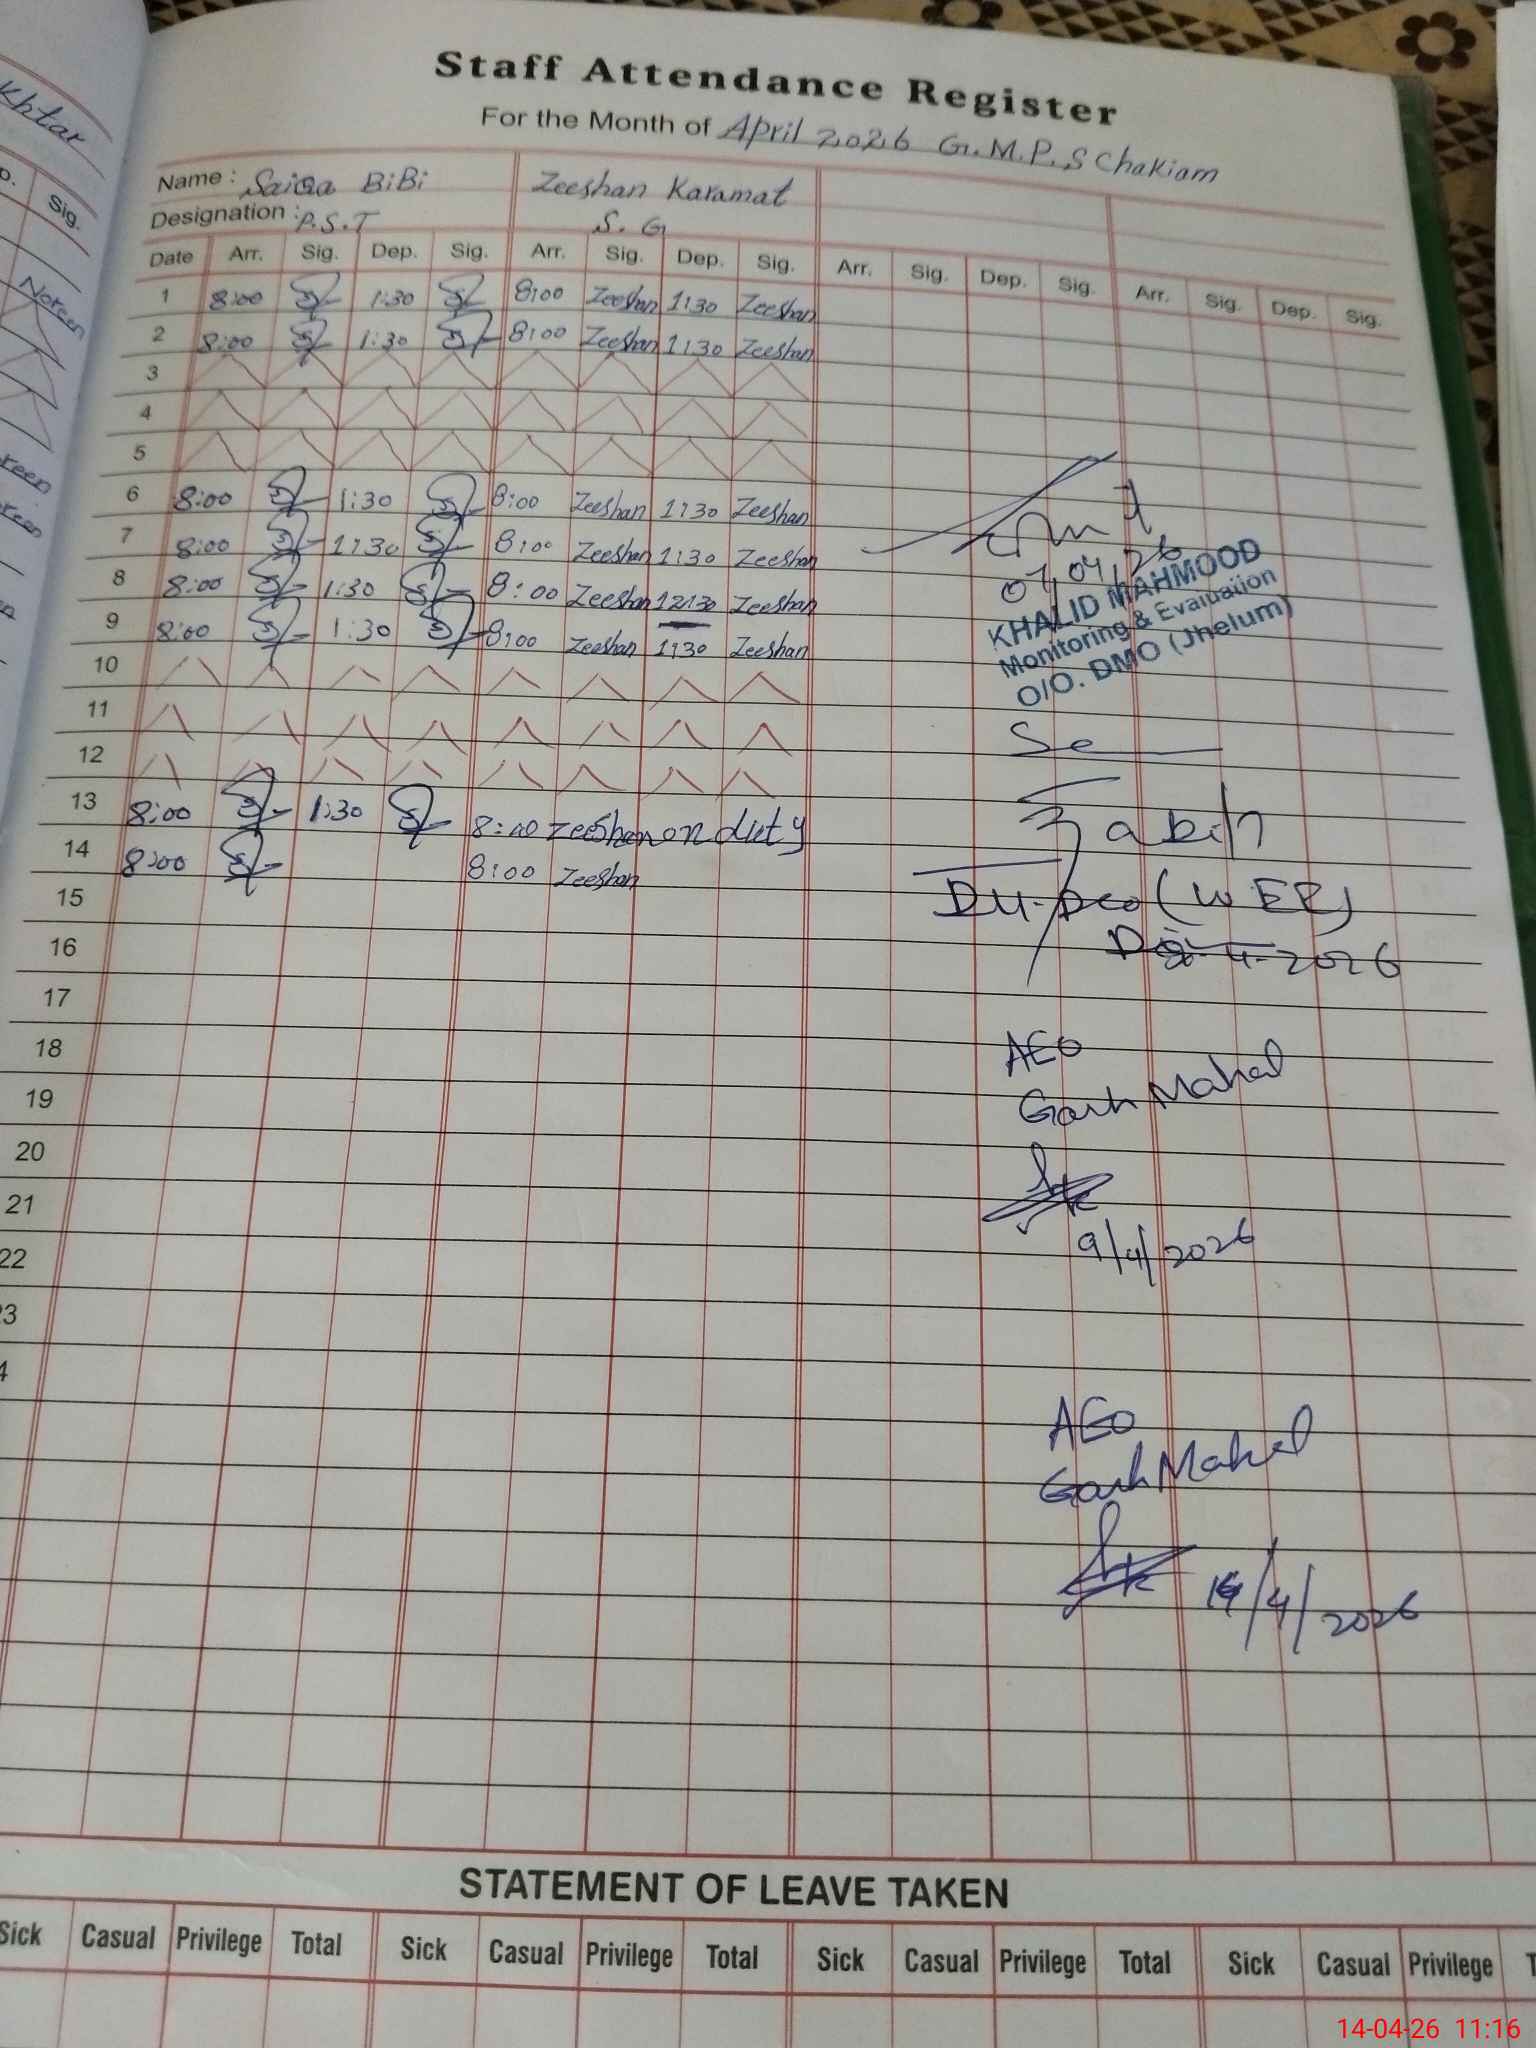 Khtar
Sig.
Noreen
Staff Attendance Register
For the Month of April 2026 G.M.P.S Chakiam
Name : Saiqa BiBi Zeeshan Karamat
Designation : P.S.T S.G
Date Arr. Sig. Dep. Sig. Arr. Sig. Dep. Sig. Arr. Sig. Dep. Sig. Arr. Sig. Dep. Sig.
1 8:00 1:30 8:00 Zeeshan 1:30 Zeeshan
2 8:00 1:30 8:00 Zeeshan 1:30 Zeeshan
3
4
5
6 8:00 1:30 8:00 Zeeshan 1:30 Zeeshan
7 8:00 1:30 8:00 Zeeshan 1:30 Zeeshan
8 8:00 1:30 8:00 Zeeshan 12:30 Zeeshan
9 8:00 1:30 8:00 Zeeshan 1:30 Zeeshan
10
11
12
13 8:00 1:30 8:00 Zeeshan on duty
14 8:00 8:00 Zeeshan
15
16
17
18
19
20
21
22
23
07/04/26
KHALID MAHMOOD
Monitoring & Evaluation
O/O. DMO (Jhelum)
Zabih
(WEE)
8-4-2026
AEO
Garh Mahal
9/4/2026
AEO
Garh Mahal
14/4/2026
STATEMENT OF LEAVE TAKEN
Sick Casual Privilege Total Sick Casual Privilege Total Sick Casual Privilege Total Sick Casual Privilege
14-04-26 11:16